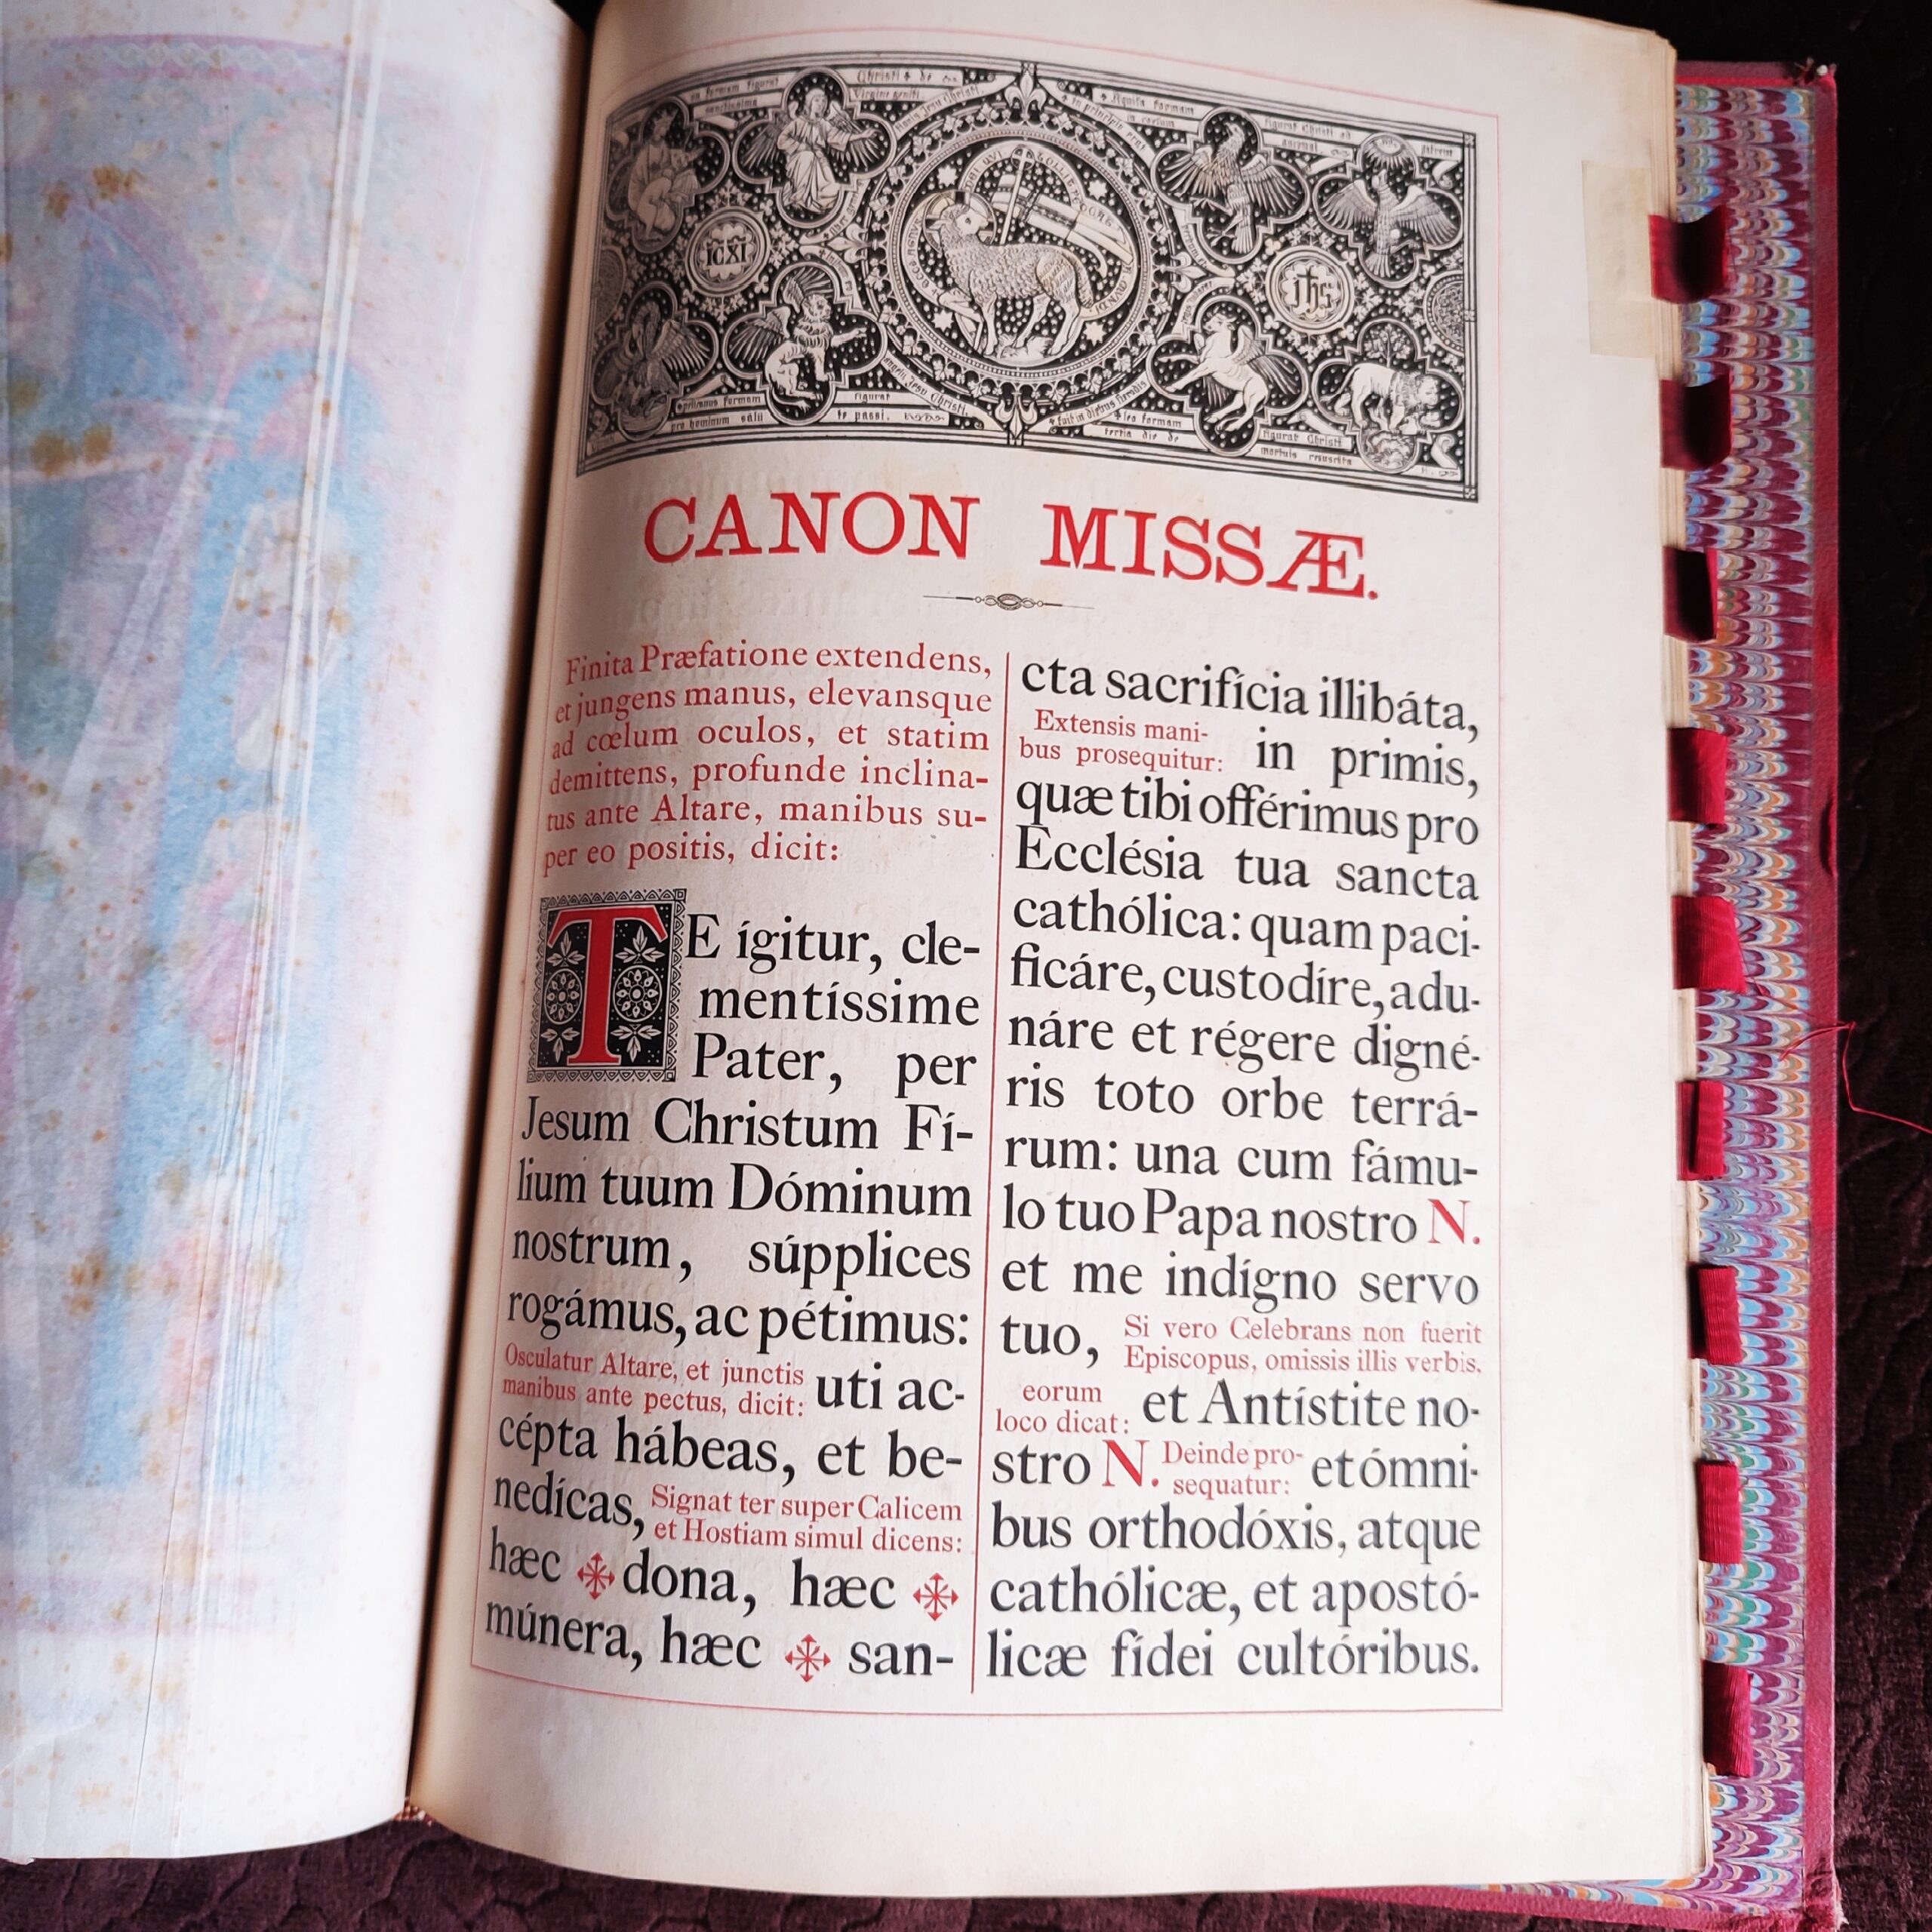 Christi
Virgine
Aquila formam
in coelum
figurat Christi
in principio erat
ICXI
Ihs
figurat
te passi.
pro hominum
leo formam
tertia die de
figurat Christi
mortuis
CANON MISSÆ.
Finita Præfatione extendens,
et jungens manus, elevansque
ad cœlum oculos, et statim
demittens, profunde inclina-
tus ante Altare, manibus su-
per eo positis, dicit:
TE ígitur, cle-
mentíssime
Pater, per
Jesum Christum Fí-
lium tuum Dóminum
nostrum, súpplices
rogámus, ac pétimus:
Osculatur Altare, et junctis
manibus ante pectus, dicit: uti ac-
cépta hábeas, et be-
nedícas, Signat ter super Calicem
et Hostiam simul dicens:
hæc ✠ dona, hæc ✠
múnera, hæc ✠ san-
cta sacrifícia illibáta,
Extensis mani-
bus prosequitur: in primis,
quæ tibi offérimus pro
Ecclésia tua sancta
cathólica: quam paci-
ficáre, custodíre, adu-
náre et régere digné-
ris toto orbe terrá-
rum: una cum fámu-
lo tuo Papa nostro N.
et me indígno servo
tuo, Si vero Celebrans non fuerit
Episcopus, omissis illis verbis,
eorum
loco dicat: et Antístite no-
stro N. Deinde pro-
sequatur: et ómni-
bus orthodóxis, atque
cathólicæ, et apostó-
licæ fídei cultóribus.